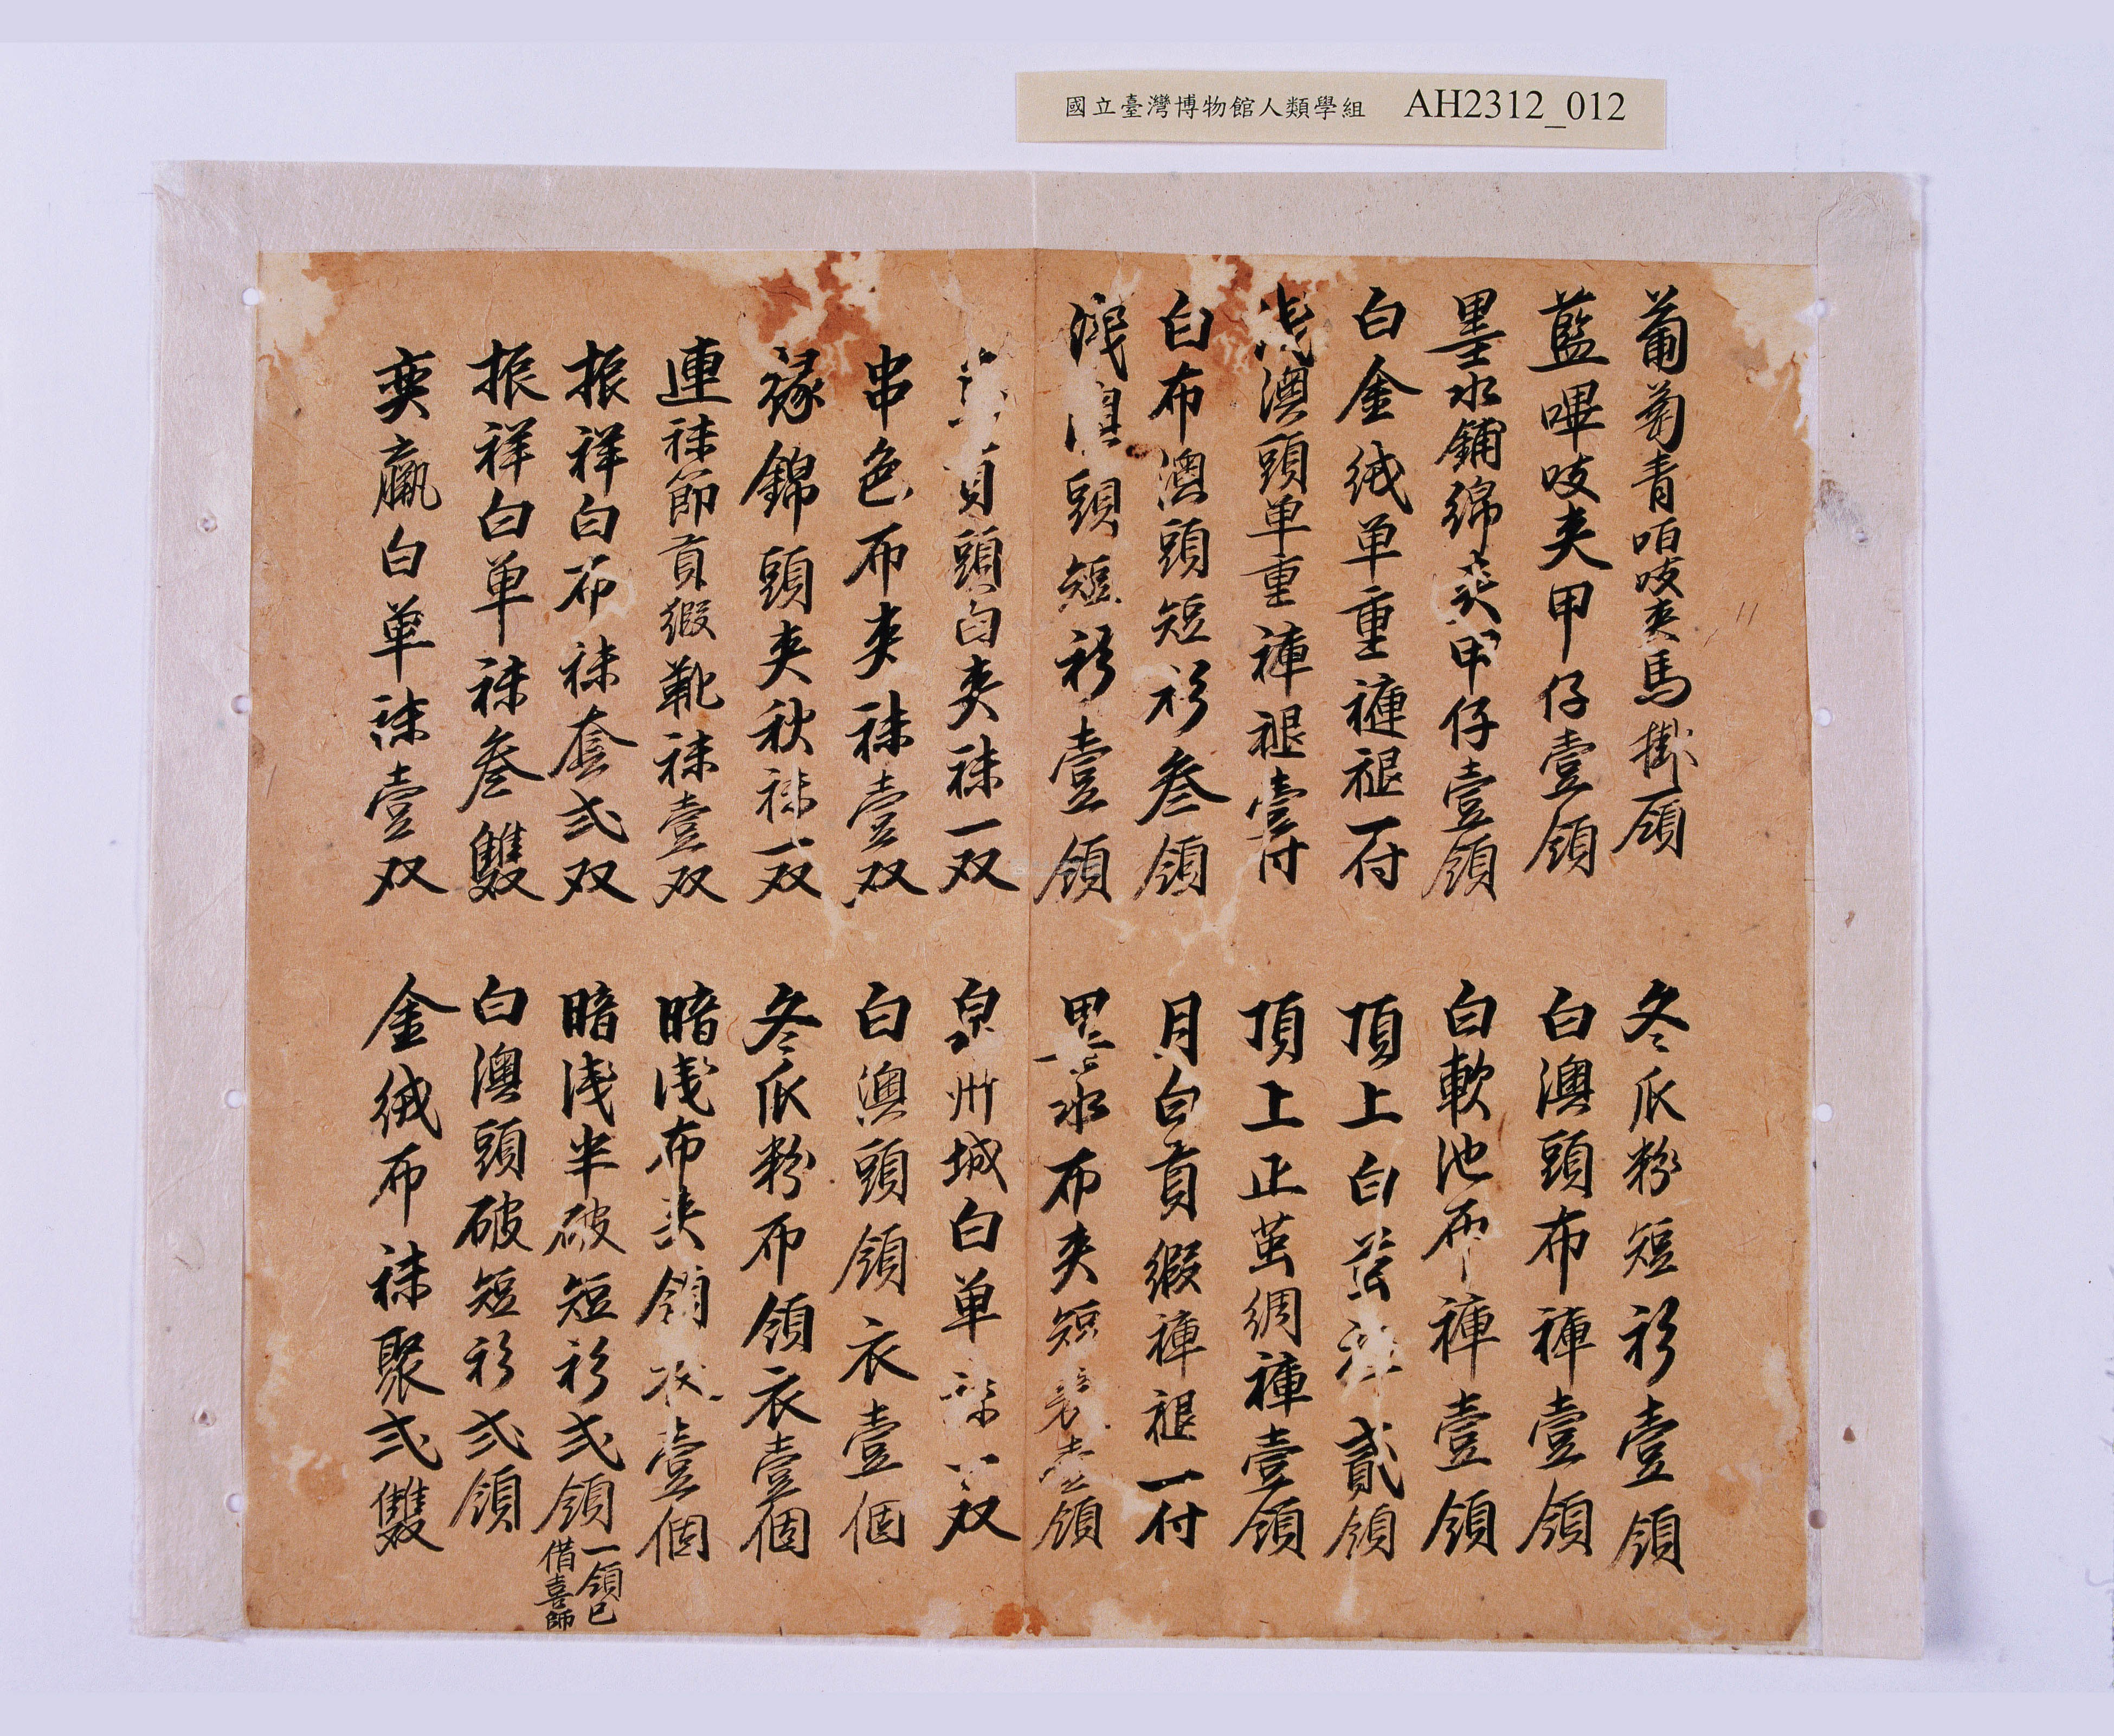 國立臺灣博物館人類學組 AH2312_012
葡萄青咱吱夾馬掛一領
冬瓜粉短衫壹領
藍嗶吱夾甲仔壹領
白澳頭布褲壹領
墨水鋪綿夾甲仔壹領
白軟池布褲壹領
白金絨单重褲褪一付
頂上白茧褲貳領
浅澳頭单重褲褪壹付
頂上正茧綢褲壹領
白布澳頭短衫叁領
月白貢緞褲褪一付
浅澳頭短衫壹領
墨水布夾短裘壹領
貢頭白夾袜一双
泉州城白单袜一双
串色布夾袜壹双
白澳頭領衣壹個
緣錦頭夾秋袜一双
冬瓜粉布領衣壹個
連袜節貢緞靴袜壹双
暗浅布夾領衣壹個
振祥白布袜套弍双
暗浅半破短衫弍領一領已借喜師
振祥白单袜叁雙
白澳頭破短衫弍領
奕贏白单袜壹双
金絨布袜聚弍雙